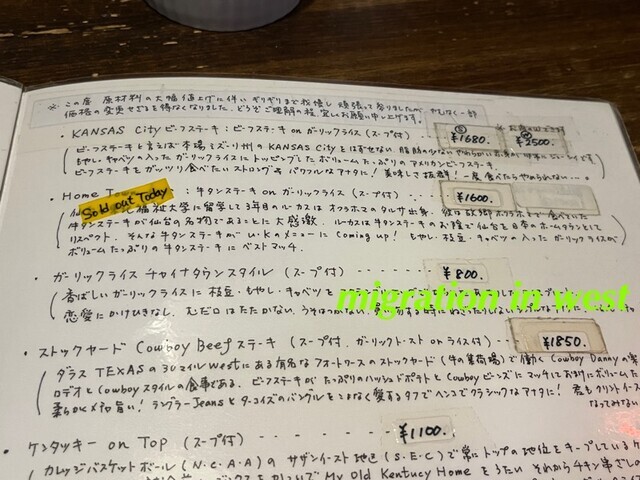 ※ この度 原材料の大幅値上げに伴い ギリギリまで我慢し 頑張って参りましたが、やむなく一部
価格の変更せざるを得なくなりました。どうぞご理解の程、宜しくお願い申し上げます。
・KANSAS City ビーフステーキ：ビーフステーキ on ガーリックライス (スープ付) S ¥1680. ¥2500.
ビーフステーキと言えば 本場ミズーリ州の KANSAS City とはずせない。脂肪の少ない やわらかい
もやし・キャベツの入った ガーリックライスに トッピングした ボリュームたっぷりの アメリカンビーフステーキ
ビーフステーキを ガッツリ食べたい ストロング & パワフルな アナタに! 美味しさ抜群! 一度食べたらやめられない…。
・Home Sold out Today : 牛タンステーキ on ガーリックライス (スープ付) ¥1600.
福祉大学に留学して3年目の ルーカスは オクラホマの タルサ出身。彼は故郷オクラホマで食べていた
牛タンステーキが仙台の名物であることに 大感激。ルーカスは牛タンステーキの お陰で仙台を日本のホームタウンとして
リスペクト。そんな牛タンステーキが u.k.の メニューに Coming up! もやし・枝豆・キャベツの入った ガーリックライスが
ボリュームたっぷりの牛タンステーキに ベストマッチ。
・ガーリックライス チャイナタウンスタイル (スープ付) ------- ¥800.
香ばしい ガーリックライスに 枝豆・もやし・キャベツを
恋愛に かけひきなし。むだ口は たたかない。うそはつかない。
migration in west
・ストックヤード Cowboy Beef ステーキ (スープ付、ガーリックトースト on ライス付) ¥1850.
ダラス TEXASの 30マイル westにある有名な フォートワースの ストックヤード (牛の集荷場) で 働く Cowboy Dannyの
ロデオと Cowboy スタイルの 食事である。ビーフステーキが たっぷりの ハッシュドポテトと Cowboy ビーンズに マッチして
柔らかくメチャ旨い! ラングラー Jeans と ターコイズの バングルを こよなく愛する タフで ヘンコで クラシックな アナタに!
・ケンタッキー on Top (スープ付) ------- ¥1100.
カレッジバスケットボール (N.C.A.A) の サザンイースト地区 (S.E.C) で 常に トップの 地位を キープしている
My Old Kentucy Home を うたい